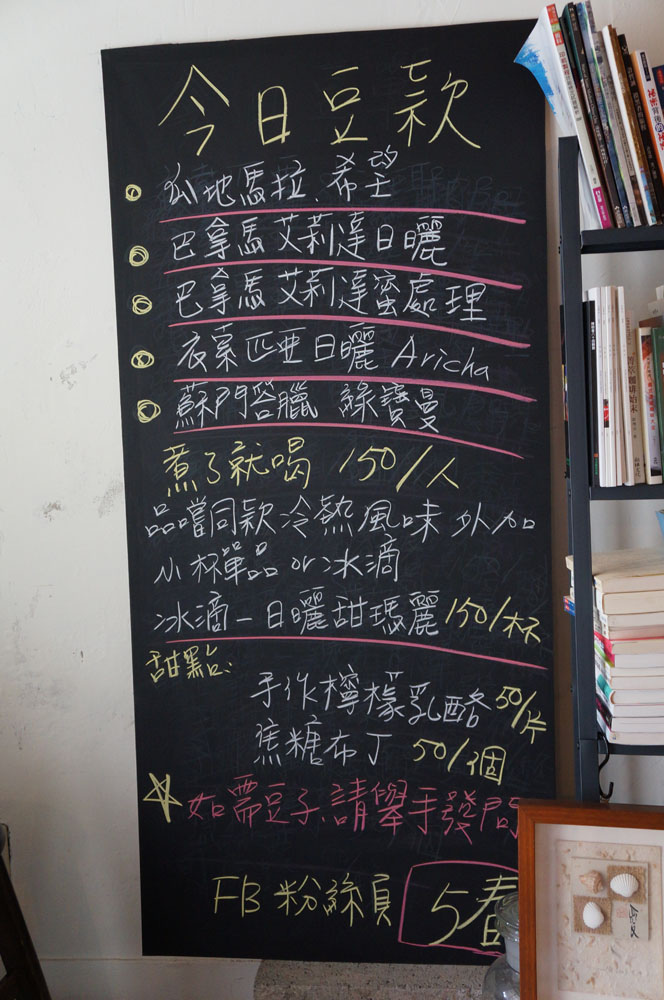 今日豆款
瓜地馬拉.希望
巴拿馬艾莉達日曬
巴拿馬艾莉達蜜處理
衣索匹亞日曬 Aricha
蘇門答臘 綠寶曼
煮了就喝 150/人
品嚐同款冷熱風味 外加
小杯單品 or 冰滴
冰滴-日曬甜瑪麗 150/杯
甜點:
手作檸檬乳酪 50/片
焦糖布丁 50/個
如需豆子,請舉手發問
FB 粉絲頁 5春